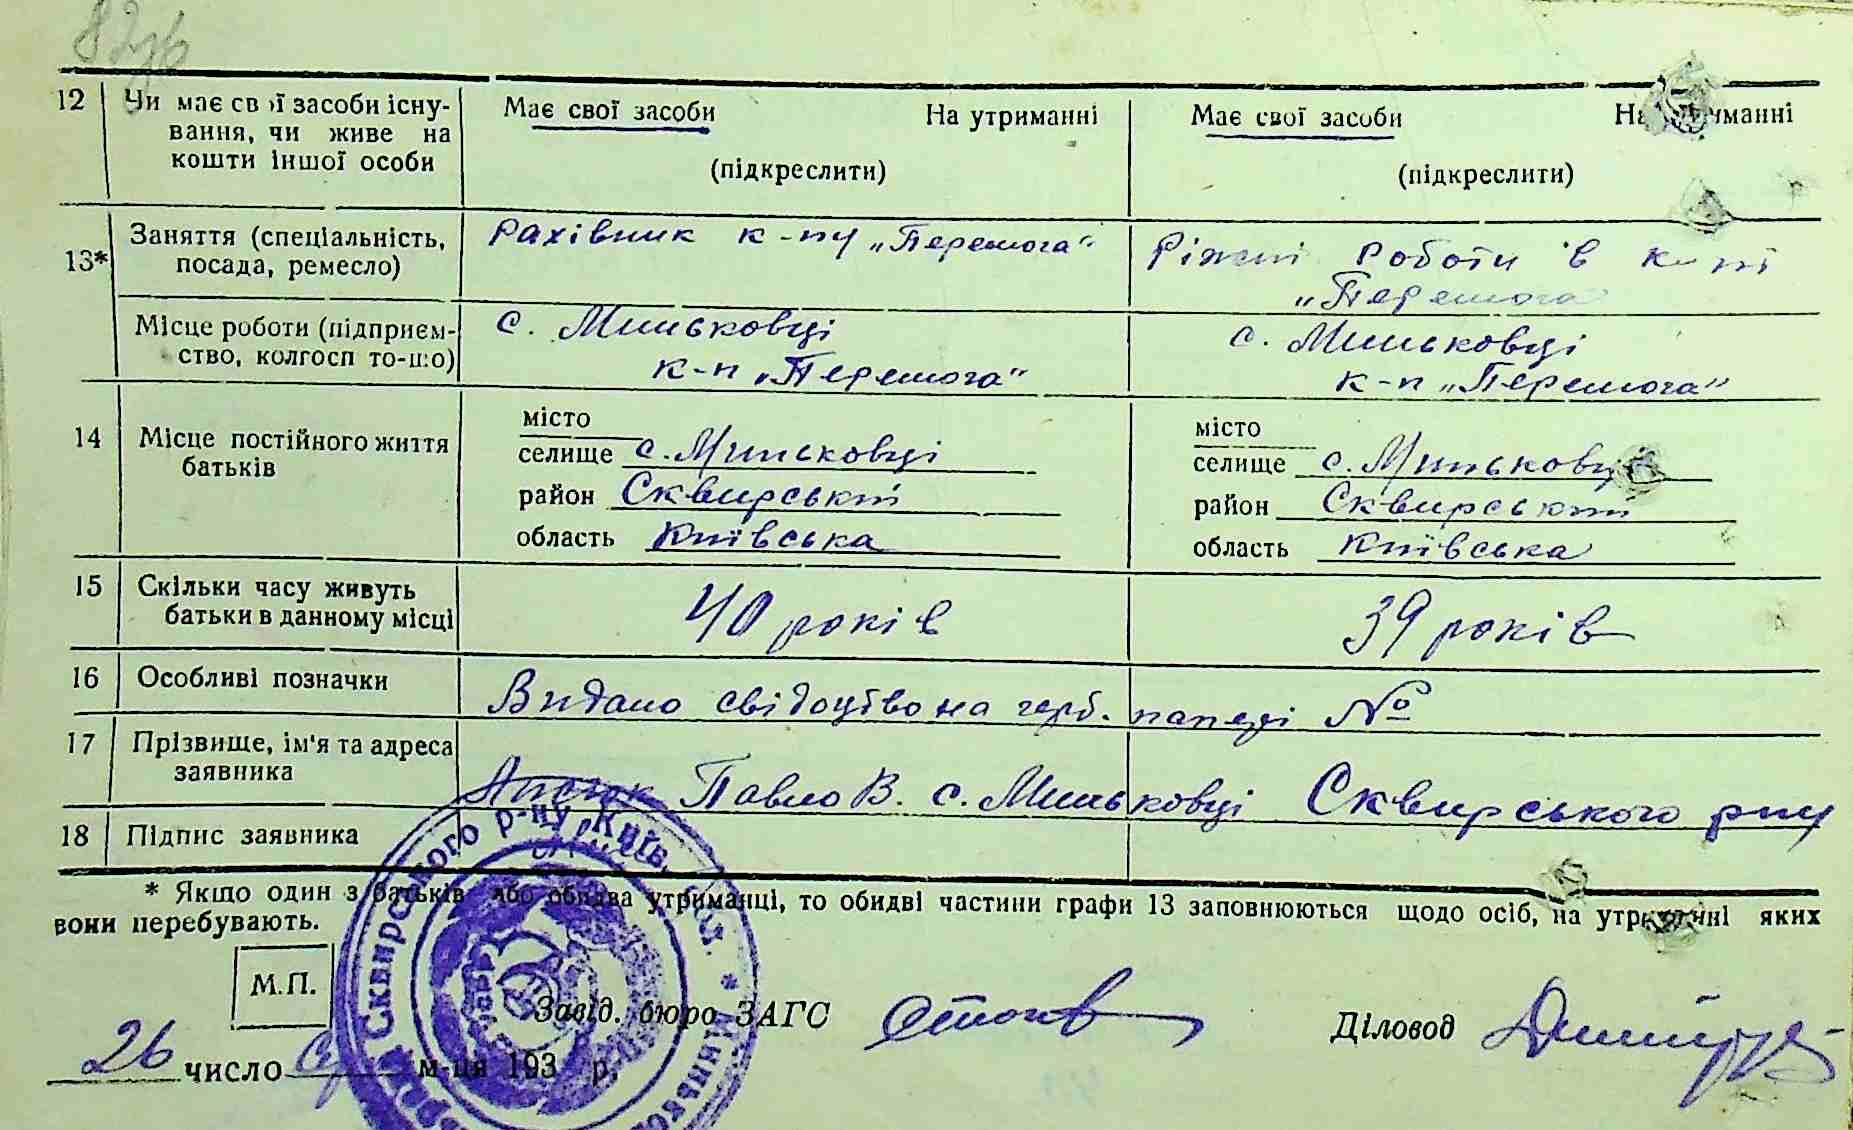 12 Чи має свої засоби існу-
вання, чи живе на
кошти іншої особи
Має свої засоби На утриманні
(підкреслити)
Має свої засоби На утриманні
(підкреслити)
13* Заняття (спеціальність,
посада, ремесло)
Рахівник к-пу „Перемога"
Ріжні роботи в
„Перемога
Місце роботи (підприєм-
ство, колгосп то-що)
с. Миньковці
к-п „Перемога"
с. Миньковці
к-п „Перемога"
14 Місце постійного життя
батьків
місто
селище с. Миньковці
район Сквирський
область Київська
місто
селище с. Миньковці
район Сквирський
область Київська
15 Скільки часу живуть
батьки в данному місці
40 років
39 років
16 Особливі позначки
Видано свідоцтво на герб. папері №
17 Прізвище, ім'я та адреса
заявника
Павло В. с. Миньковці Сквирського р-ну
18 Підпис заявника
* Якщо один з батьків або обидва утриманці, то обидві частини графи 13 заповнюються щодо осіб, на утриманні яких
вони перебувають.
М.П.
Завід. бюро ЗАГС
Діловод
26 число м-ця 193 р.
Сквирського р-ну, Київ.